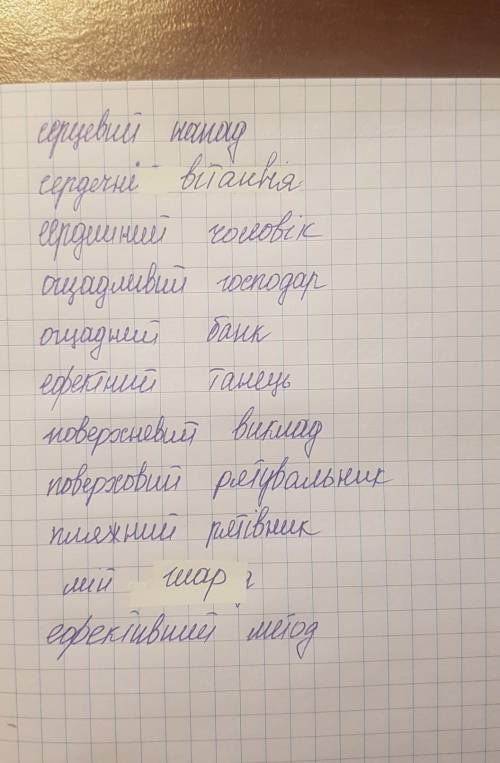 серцевий напад
сердечні вітання
сердишний чоловік
ощадливий господар
ощадний банк
ефектний танець
поверхневий виклад
поверховий рятувальник
пляжний рятівник
мій шар
ефективний метод